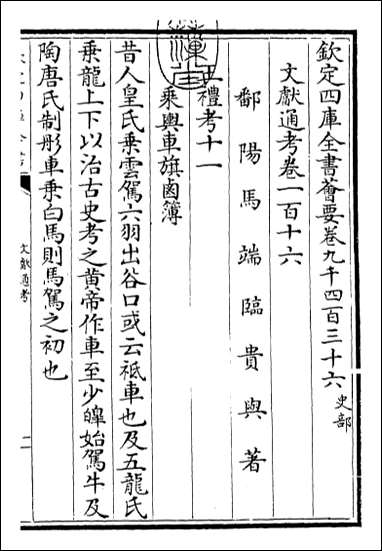 欽定四庫全書薈要卷九千四百三十六 史部
文獻通考卷一百十六
鄱陽馬端臨貴與著
王禮考十一
乘輿車旗鹵簿
昔人皇氏乘雲駕六羽出谷口或云祗車也及五龍氏
乘龍上下以治古史考之黄帝作車至少皥始駕牛及
陶唐氏制彤車乘白馬則馬駕之初也
文獻通考